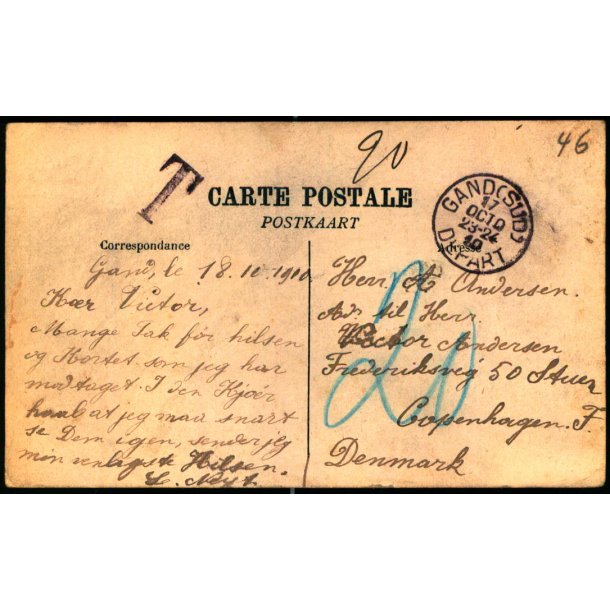 46
90
T
CARTE POSTALE
POSTKAART
GAND (SUD)
17
OCT 10
23-24
* 10 *
DEPART
Correspondance
Adresse
Gand, le 18.10.1910
Kær Victor,
Mange Tak för hilsen
og Kortet som jeg har
modtaget. I den
haab at jeg maa snart
se Dem igen, sender jeg
min venligst Hilsen.
Herr A Andersen.
Adr til Herr
Victor Andersen
Frederiksveg 50 Stuen
Copenhagen. F
Denmark
20